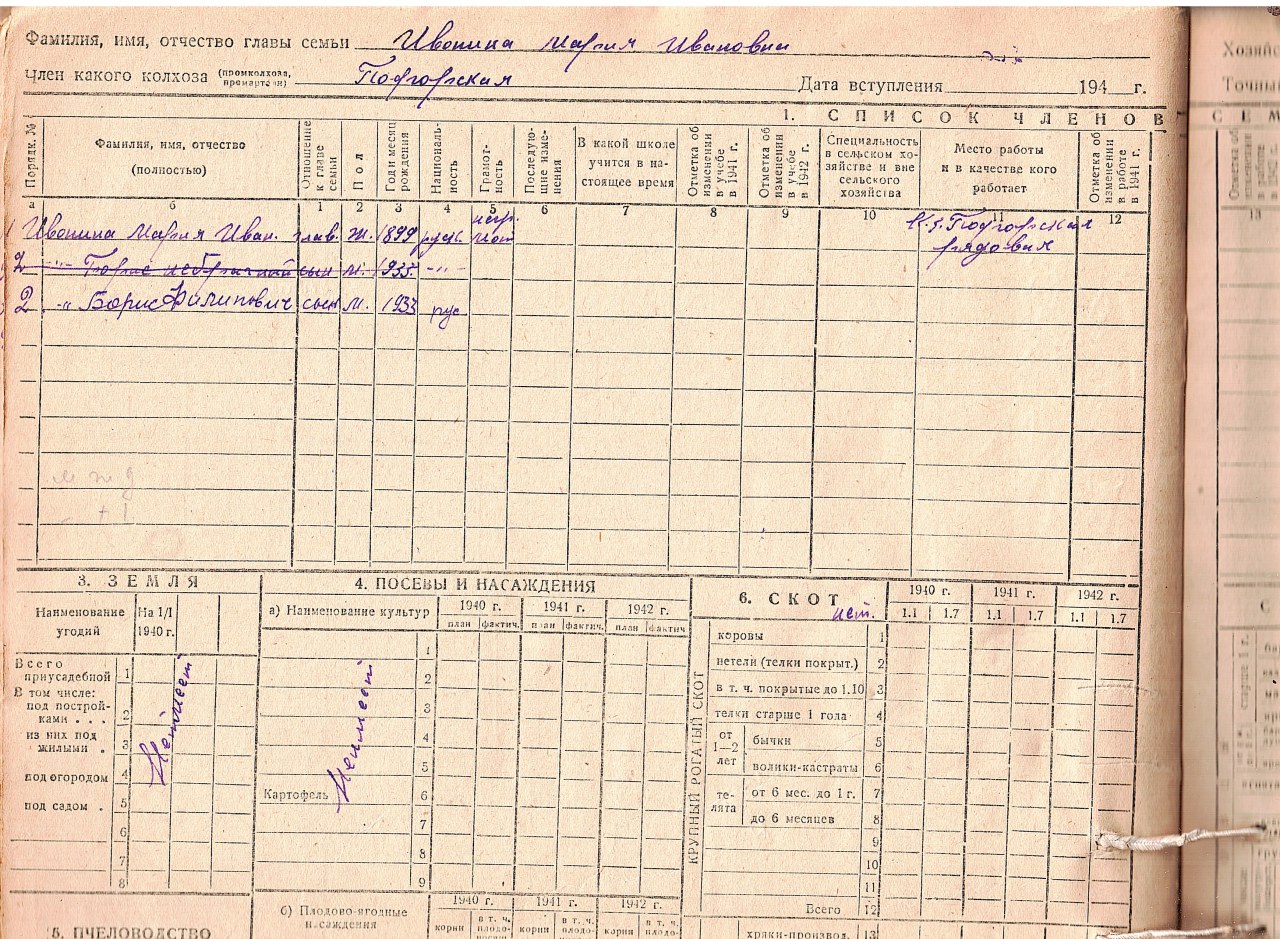 Фамилия, имя, отчество главы семьи Ивонина Мария Ивановна
Член какого колхоза (промколхоза, промартели) Подгорская Дата вступления 194 г.
1. СПИСОК ЧЛЕНОВ
Порядк. №
Фамилия, имя, отчество (полностью)
Отношение к главе семьи
Пол
Год и месяц рождения
Националь-ность
Грамот-ность
Последую-щие изме-нения
В какой школе учится в на-стоящее время
Отметка об изменении в учебе в 1941 г.
Отметка об изменении в учебе в 1942 г.
Специальность в сельском хо-зяйстве и вне сельского хозяйства
Место работы и в качестве кого работает
Отметка об изменении в работе в 1941 г.
а б 1 2 3 4 5 6 7 8 9 10 11 12
1 Ивонина Мария Иван. глав. Ж. 1899 русск. негр. К.з. Подгорская
рядовая
2 -"- сын М. 1935 -"-
2 " Борис Филипович сын М. 1933 рус
м ж д
+ 1
3. ЗЕМЛЯ
Наименование угодий
На 1/I 1940 г.
Всего приусадебной 1
В том числе:
под построй-ками . . . 2
из них под жилыми . 3
под огородом 4
под садом . 5
6
7
8
Не имеет
5. ПЧЕЛОВОДСТВО
4. ПОСЕВЫ И НАСАЖДЕНИЯ
а) Наименование культур
1940 г. 1941 г. 1942 г.
план фактич. план фактич. план фактич
1
2
3
4
5
Картофель 6
7
8
9
Не имеет
б) Плодово-ягодные насаждения
1940 г. 1941 г. 1942 г.
корни в т. ч. плодо- корни в т. ч. плодо- корни в т. ч. плодо-
6. СКОТ нет.
1940 г. 1941 г. 1942 г.
1.1 1.7 1.1 1.7 1.1 1.7
КРУПНЫЙ РОГАТЫЙ СКОТ
коровы 1
нетели (телки покрыт.) 2
в т. ч. покрытые до 1.10 3
телки старше 1 года 4
от 1—2 лет
бычки 5
волики-кастраты 6
те-лята
от 6 мес. до 1 г. 7
до 6 месяцев 8
9
10
11
Всего 12
хряки-производ. 13
Хозяйс
Точный
СЕМ
13